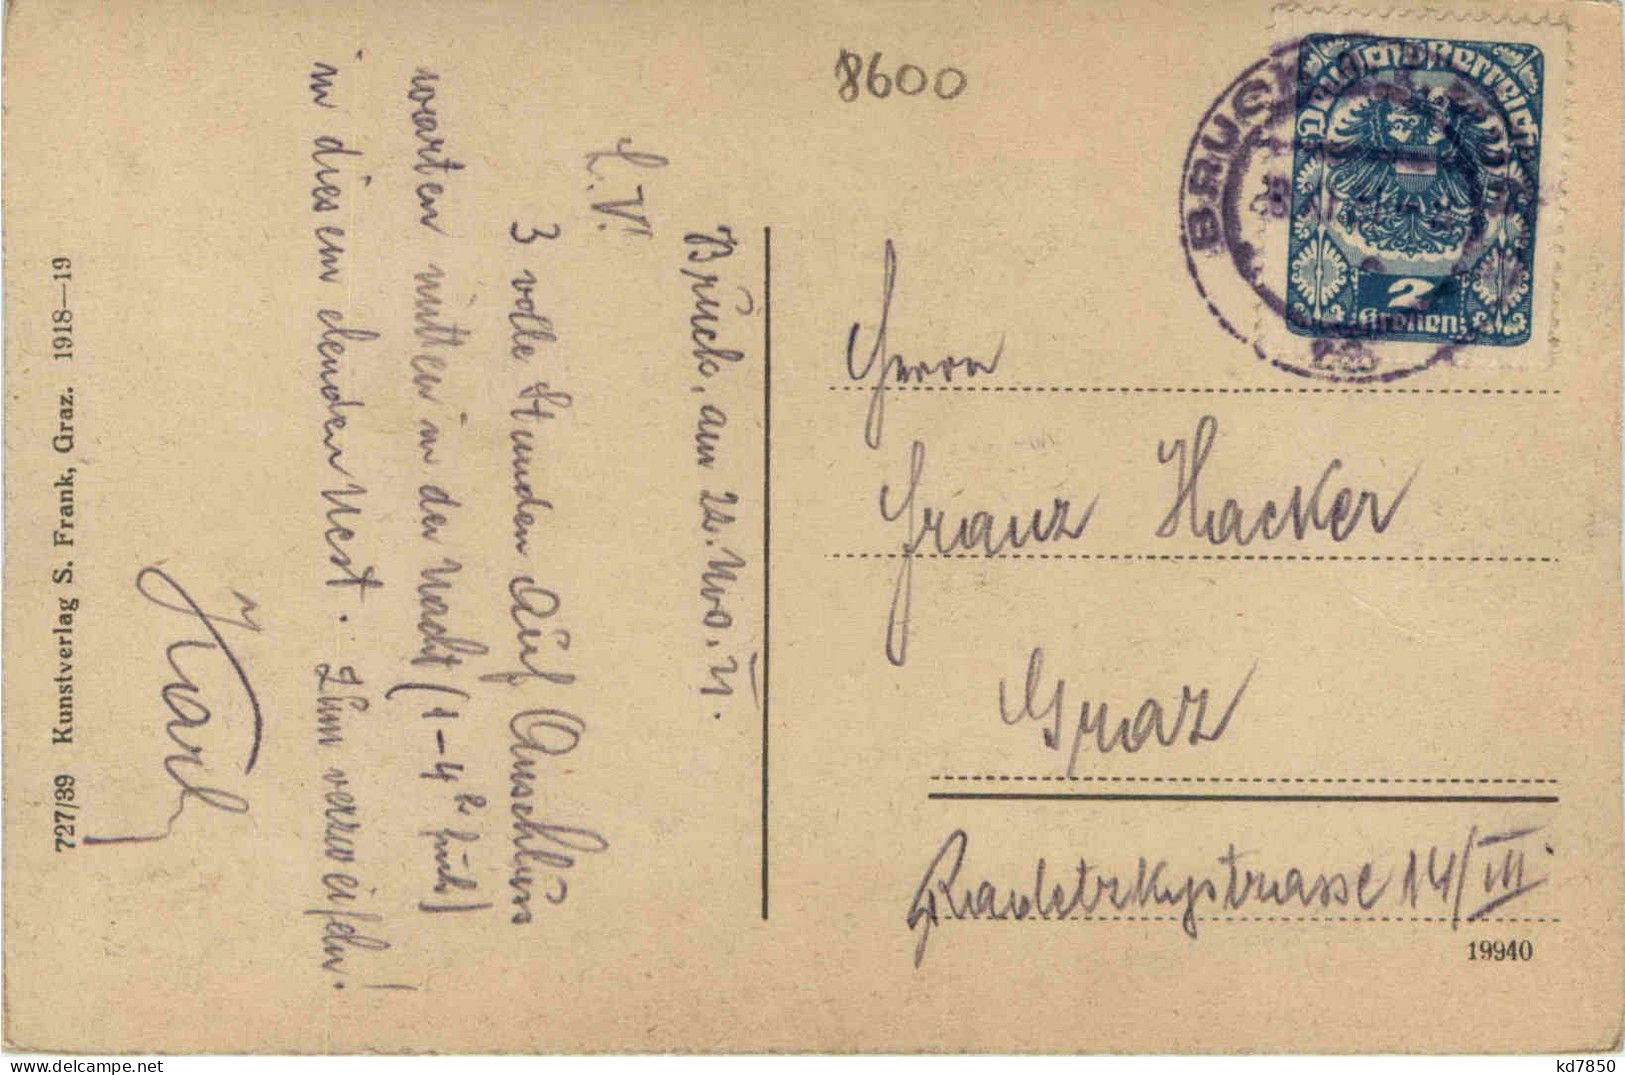 8600
Deutschösterreich
2
Kronen
BRUCK
Bruck, am 22. Nov. 21.
L. V.!
3 volle Stunden auf Anschluss
warten mitten in der Nacht (1-4h früh)
in diesem elenden Nest. Zum verzweifeln!
Karl
Herrn
Franz Hacker
Graz
Radetzkystrasse 14/III.
19940
727/39 Kunstverlag S. Frank, Graz. 1918—19
kd7850